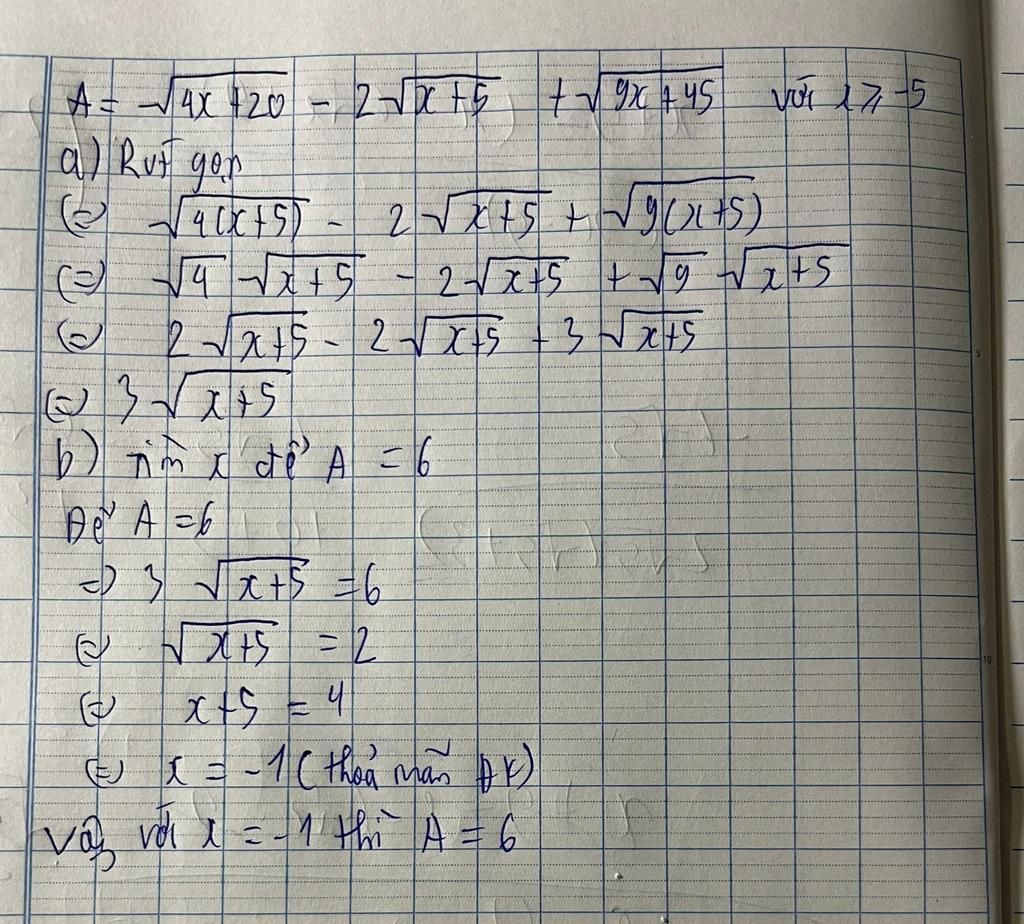 A = √(4x+20) - 2√(x+5) + √(9x+45) với x ⩾ -5
a) Rút gọn
(=) √(4(x+5)) - 2√(x+5) + √(9(x+5))
(=) √4 √(x+5) - 2√(x+5) + √9 √(x+5)
(=) 2√(x+5) - 2√(x+5) + 3√(x+5)
(=) 3√(x+5)
b) Tìm x để A = 6
Để A = 6
=) 3√(x+5) = 6
(=) √(x+5) = 2
(=) x+5 = 4
(=) x = -1 (thoả mãn ĐK)
Vậy với x = -1 thì A = 6
5
10